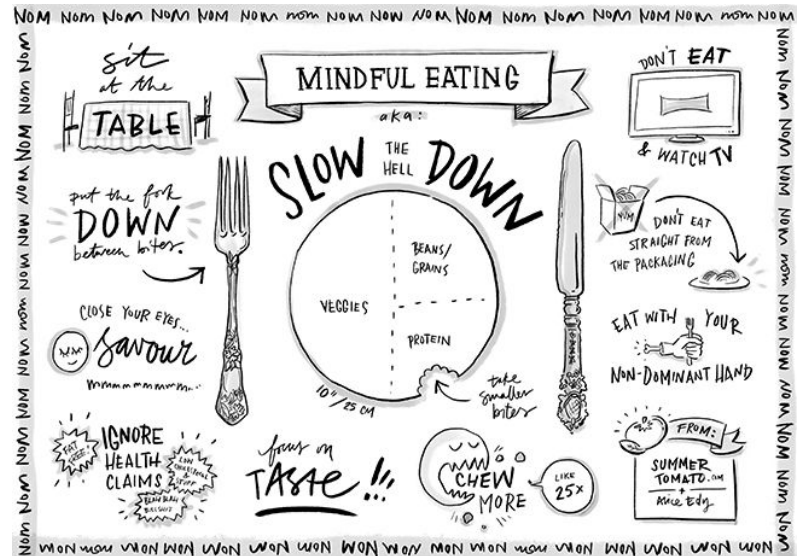 NOM NOM NOM NOM NOM NOM nom NOM NOM NOM NOM NOM NOM nom NOM
MINDFUL EATING
aka:
SLOW THE HELL DOWN
sit
at the
TABLE
put the fork
DOWN
between bites.
CLOSE YOUR EYES...
savour
mmmmmmmmmm...
FAT FREE!
IGNORE
HEALTH
CLAIMS
LOW
CHOLESTEROL
&
STUFF
BLAH BLAH
BULLSHIT
VEGGIES
BEANS/
GRAINS
PROTEIN
10"/25 CM
take
smaller
bites
focus on
TASTE!!!
CHEW
MORE
LIKE
25x
DON'T EAT
& WATCH TV
YUM
DON'T EAT
STRAIGHT FROM
THE PACKAGING
EAT WITH YOUR
NON-DOMINANT HAND
FROM:
SUMMER
TOMATO.com
+
Alice Edy